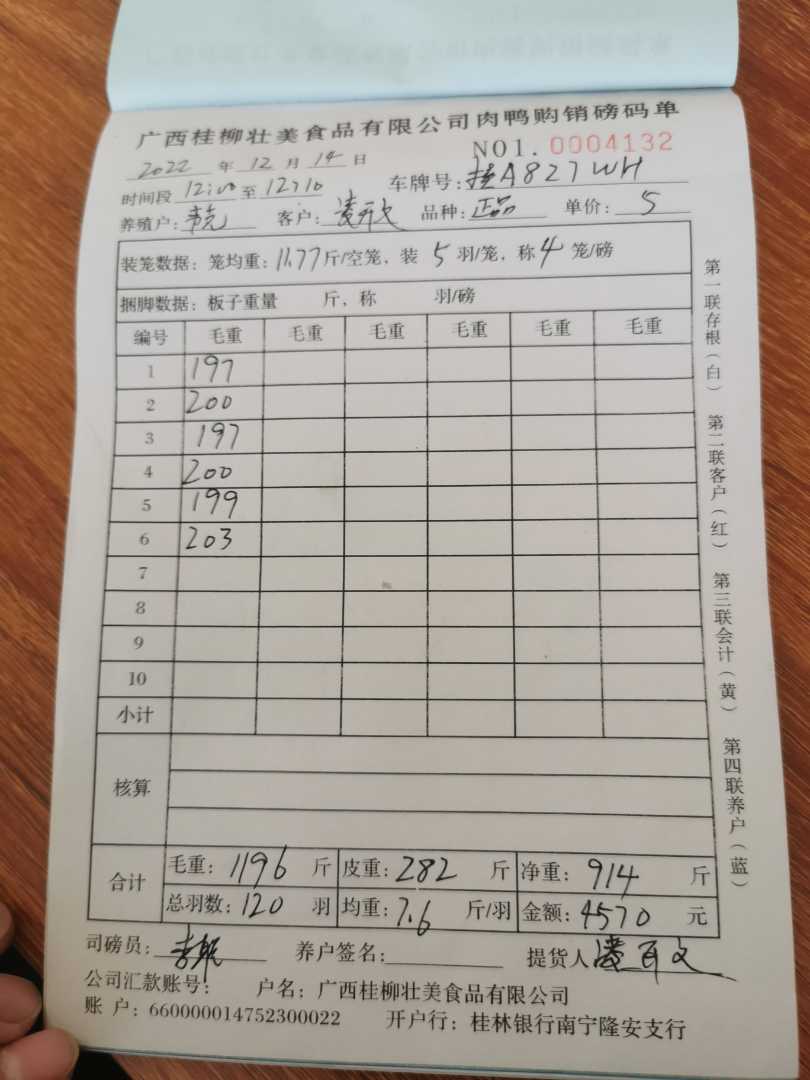 广西桂柳壮美食品有限公司肉鸭购销磅码单
NO1. 0004132
2022 年 12 月 14 日
时间段 12:00 至 12:10 车牌号: 桂A827WH
养殖户: 客户: 品种: 正品 单价: 5
装笼数据: 笼均重: 11.77 斤/空笼, 装 5 羽/笼, 称 4 笼/磅
捆脚数据: 板子重量 斤, 称 羽/磅
编号 毛重 毛重 毛重 毛重 毛重 毛重
1 197
2 200
3 197
4 200
5 199
6 203
7
8
9
10
小计
核算
合计
毛重: 1196 斤 皮重: 282 斤 净重: 914 斤
总羽数: 120 羽 均重: 7.6 斤/羽 金额: 4570 元
司磅员: 养户签名: 提货人
公司汇款账号: 户名: 广西桂柳壮美食品有限公司
账 户: 660000014752300022 开户行: 桂林银行南宁隆安支行
第一联存根(白) 第二联客户(红) 第三联会计(黄) 第四联养户(蓝)